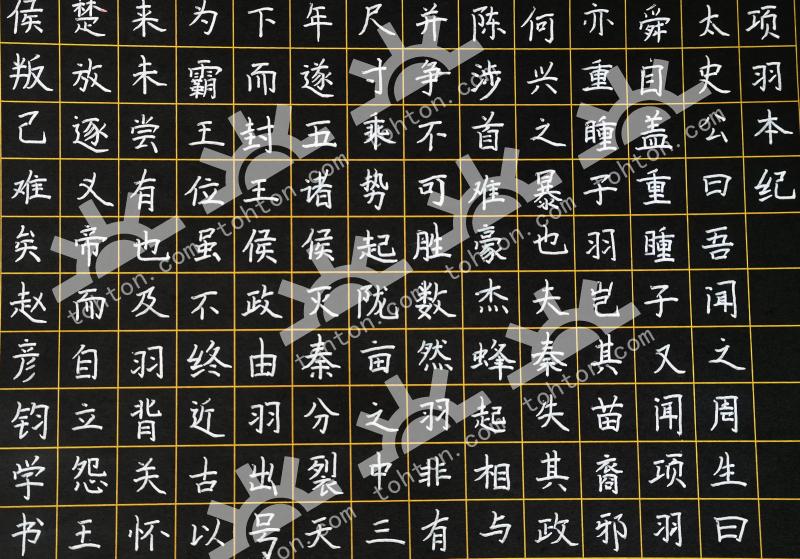 项羽本纪
太史公曰吾闻之周生曰
舜目盖重瞳子又闻项羽
亦重瞳子羽岂其苗裔邪
何兴之暴也夫秦失其政
陈涉首难豪杰蜂起相与
并争不可胜数然羽非有
尺寸乘势起陇亩之中三
年遂五诸侯灭秦分裂天
下而封王侯政由羽出号
为霸王位虽不终近古以
来未尝有也及羽背关怀
楚放逐义帝而自立怨王
侯叛己难矣赵彦钧学书
tohton.com